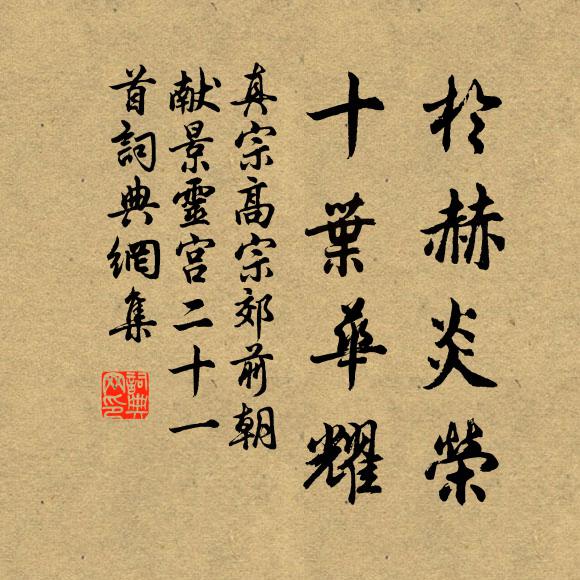 於赫炎榮
十葉華耀
真宗高宗郊前朝
献景靈宫二十一
首詞典網集
詞典網印